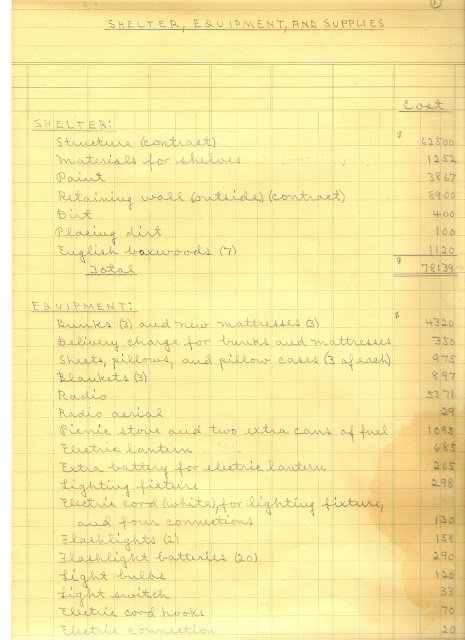 ①
SHELTER, EQUIPMENT, AND SUPPLIES
Cost
SHELTER:
Structure (contract) $ 62500
Materials for shelves 1252
Paint 3867
Retaining wall (outside) (contract) 8900
Dirt 400
Placing dirt 100
English boxwoods (7) 1120
Total $ 78139
EQUIPMENT:
Bunks (3) and new mattresses (3) $ 4320
Delivery charge for bunks and mattresses 350
Sheets, pillows, and pillow cases (3 of each) 975
Blankets (3) 897
Radio 5371
Radio aerial 29
Picnic stove and two extra cans of fuel 1095
Electric lantern 685
Extra battery for electric lantern 265
Lighting fixture 298
Electric cord (white), for lighting fixture,
and four connections 130
Flashlights (2) 158
Flashlight batteries (20) 290
Light bulbs 120
Light switch 33
Electric cord hooks 70
Electric connection 20